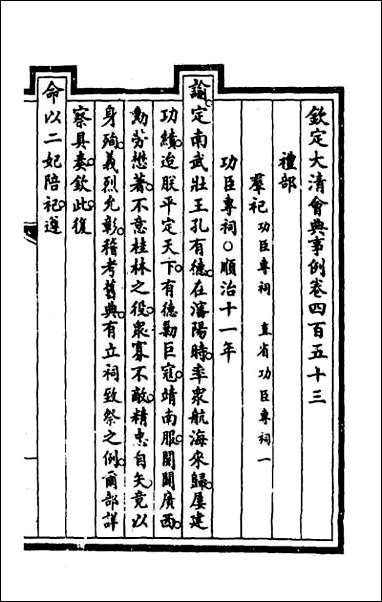 欽定大清會典事例卷四百五十三
禮部
羣祀 功臣專祠 直省功臣專祠一
功臣專祠○順治十一年
諭定南武壯王孔有德在瀋陽時率衆航海來歸屢建
功績迨朕平定天下有德勦巨寇靖南服開闢廣西
勳勞懋著不意桂林之役衆寡不敵精忠自矢竟以
身殉義烈允彰稽考舊典有立祠致祭之例爾部詳
察具奏欽此復
命以二妃陪祀遵